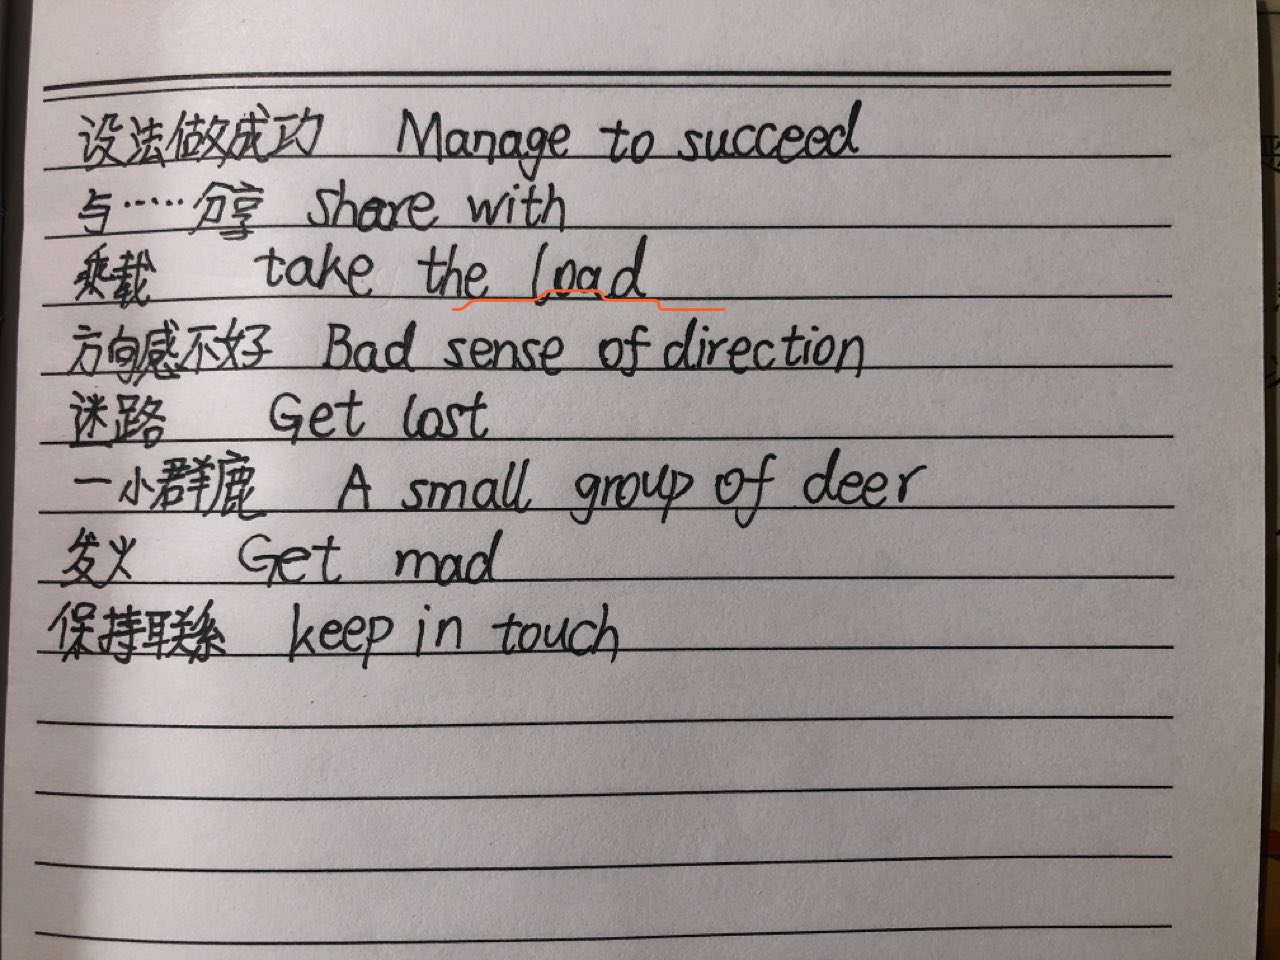 设法做成功 Manage to succeed
与……分享 share with
乘载 take the load
方向感不好 Bad sense of direction
迷路 Get lost
一小群鹿 A small group of deer
发火 Get mad
保持联系 keep in touch